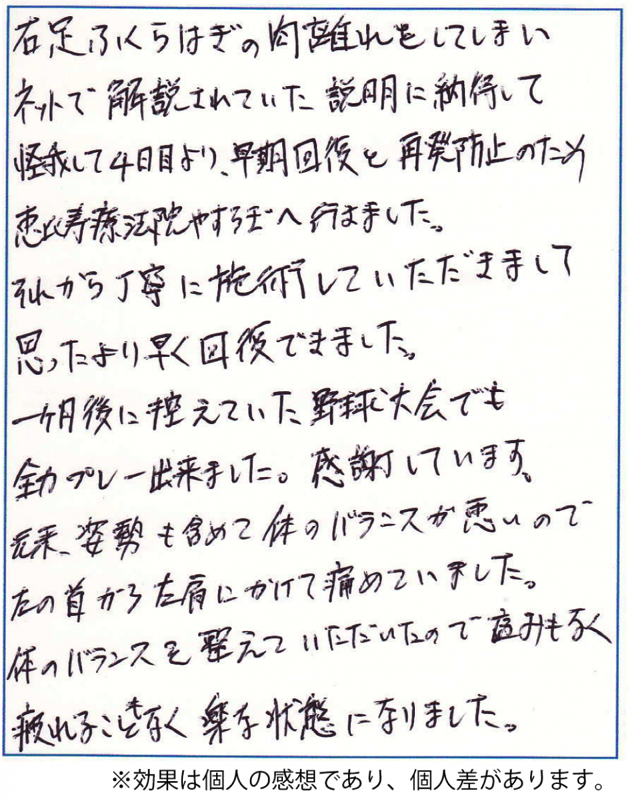 右足ふくらはぎの肉離れをしてしまい
ネットで解説されていた説明に納得して
怪我して4日目より、早期回復と再発防止のため
恵比寿療法院やすらぎへ行きました。
それから丁寧に施術していただきまして
思ったより早く回復できました。
一ヶ月後に控えていた野球大会でも
全力プレー出来ました。感謝しています。
元来、姿勢も含めて体のバランスが悪いので
左の首から左肩にかけて痛めていました。
体のバランスを整えていただいたので痛みもなく
疲れることもなく楽な状態になりました。
※効果は個人の感想であり、個人差があります。